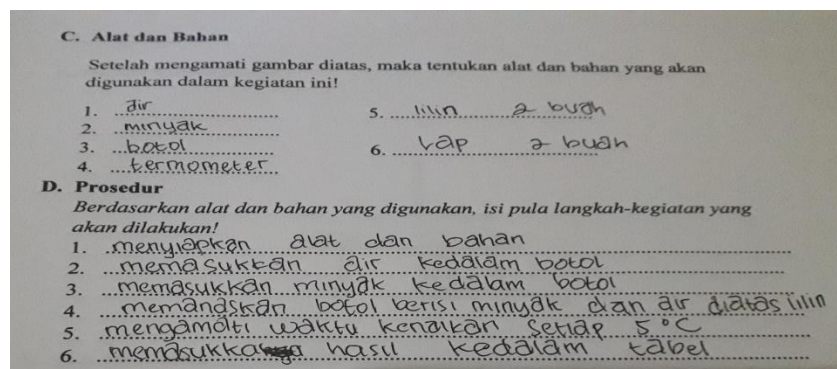 C. Alat dan Bahan
Setelah mengamati gambar diatas, maka tentukan alat dan bahan yang akan
digunakan dalam kegiatan ini!
1. air
2. minyak
3. botol
4. termometer
5. lilin 2 buah
6. Lap 2 buah
D. Prosedur
Berdasarkan alat dan bahan yang digunakan, isi pula langkah-kegiatan yang
akan dilakukan!
1. menyiapkan alat dan bahan
2. memasukkan air kedalam botol
3. memasukkan minyak kedalam botol
4. memanaskan botol berisi minyak dan air diatas lilin
5. mengamati waktu kenaikan setiap 5°C
6. memasukka hasil kedalam tabel